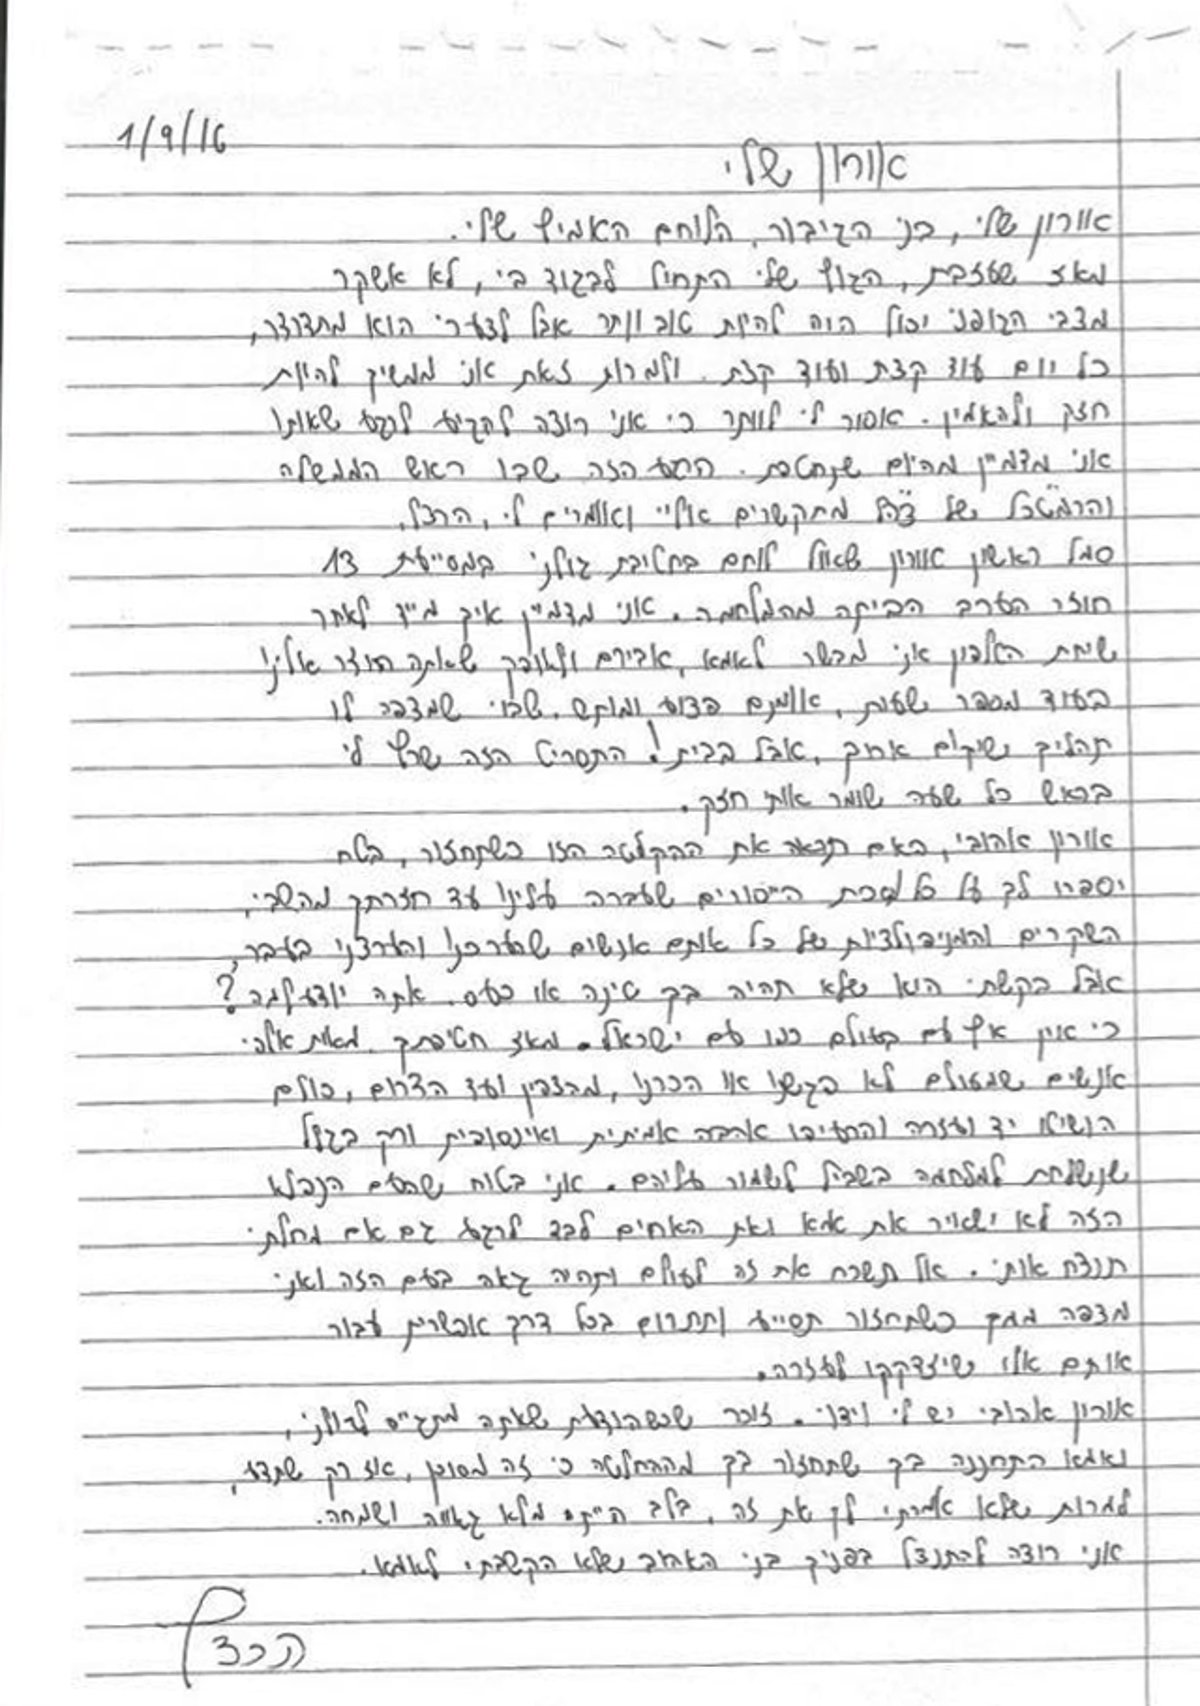 1/9/16
אורון שלי
אורון שלי, בני הגיבור, הלוחם האמיץ שלי.
מאז שעזבת, הגוף שלי התחיל לבגוד בי, לא אשקר
מצבי הגופני יכול היה להיות טוב יותר אבל לצערי הוא מתדרדר,
כל יום עוד קצת ועוד קצת. ולמרות זאת אני ממשיך להיות
חזק ולהאמין. אסור לי לוותר כי אני רוצה להגיע לרגע שאותו
אני מדמיין מהיום שנחטפת. הרגע הזה שבו ראש הממשלה
והרמטכ"ל של צה"ל מתקשרים אליי ואומרים לי, הרצל,
סמל ראשון אורון שאול לוחם בחטיבת גולני במסייעת 13
חוזר הערב הביתה מהמלחמה. אני מדמיין איך מייד לאחר
שיחת הטלפון אני מבשר לאמא, אבירם ולאופק שאתה חוזר אלינו
בעוד מספר שעות, אומנם פצוע ומותש, שבוי שמצפה לו
תהליך שיקום ארוך, אבל בבית! התסריט הזה שרץ לי
בראש כל שעה שומר אותי חזק.
אורון אהובי, האם תראה את ההקלטה הזו כשתחזור, בטח
יספרו לך על כל מסכת הייסורים שעברה עלינו עד חזרתך מהשבי,
השקרים והמניפולציות של כל אותם אנשים שהערכנו והערצנו בעבר,
אבל בקשתי היא שלא תהיה בך טינה או כעס. אתה יודע למה?
כי אין אף עם בעולם כמו עם ישראל. מאז חטיפתך, מאות אלפי
אנשים שמעולם לא פגשנו או הכרנו, מהצפון ועד הדרום, כולם
הושיטו יד ועזרה והרעיפו אהבה אמיתית ואינסופית ורק בגלל
שנשלחת למלחמה בשביל לשמור עליהם. אני בטוח שהעם הנפלא
הזה לא ישאיר את אמא ואת האחים לבד לרגע גם אם מחלתי
תנצח אותי. אל תשכח את זה לעולם ותהיה גאה בעם הזה ואני
מצפה ממך כשתחזור תסייע ותתרום בכל דרך אפשרית עבור
אותם אלו שיזדקקו לעזרה.
אורון אהובי יש לי וידוי. זוכר שכשהודעת שאתה מתגייס לגולני,
ואמא התחננה בך שתחזור בך מההחלטה כי זה מסוכן, אז רק שתדע,
למרות שלא אמרתי לך את זה, בלב הייתי מלא גאווה ושמחה.
אני רוצה להתנצל בפניך בני האהוב שלא הקשבתי לאמא.